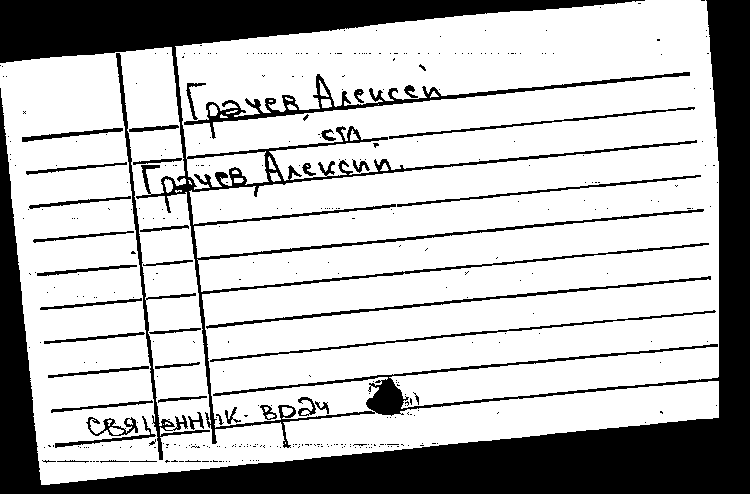 Грачев, Алексей
стл
Грачев, Алексий.
священник. врач